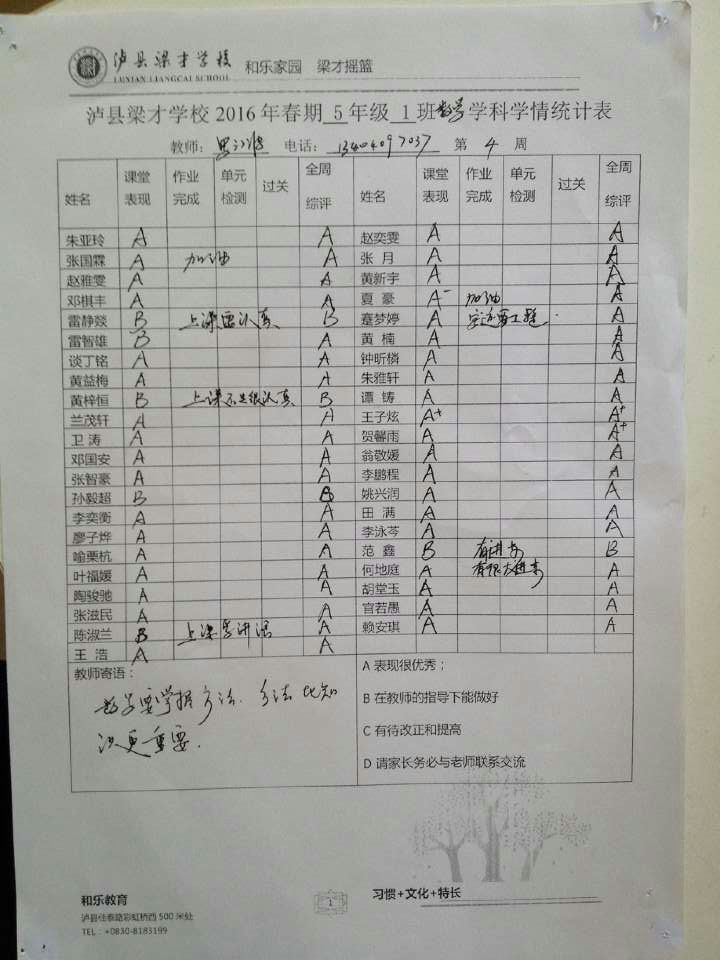 泸县梁才学校 和乐家园 梁才摇篮
LUXIAN LIANGCAI SCHOOL
泸县梁才学校 2016 年春期 5 年级 1 班 数学 学科学情统计表
教师: 电话: 13404097037 第 4 周
姓名 课堂表现 作业完成 单元检测 过关 全周综评 姓名 课堂表现 作业完成 单元检测 过关 全周综评
朱亚玲 A A 赵奕雯 A A
张国霖 A 加油 A 张月 A A
赵雅雯 A A 黄新宇 A A
邓棋丰 A A 夏豪 A⁻ 加油 A
雷静燚 B 上课要认真 B 蹇梦婷 A A
雷智雄 B A 黄楠 A A
谈丁铭 A A 钟昕橉 A A
黄益梅 A A 朱雅轩 A A
黄梓恒 B 上课不是很认真 B 谭铸 A A
兰茂轩 A A 王子炫 A⁺ A⁺
卫涛 A A 贺馨雨 A A⁺
邓国安 A A 翁敬媛 A A
张智豪 A A 李鹏程 A A
孙毅超 B B 姚兴润 A A
李奕衡 A A 田满 A A
廖子烨 A A 李泳芩 A A
喻栗杭 A A 范鑫 B 有进步 B
叶福媛 A A 何地庭 A 有很大进步 A
陶骏驰 A A 胡堂玉 A A
张滋民 A A 官若愚 A A
陈淑兰 B 上课爱讲话 A 赖安琪 A A
王浩 A A
教师寄语:
数学要掌握方法,方法比知
识更重要.
A 表现很优秀;
B 在教师的指导下能做好
C 有待改正和提高
D 请家长务必与老师联系交流
和乐教育
泸县佳泰路彩虹桥西 500 米处
TEL:+0830-8183199
1
习惯+文化+特长